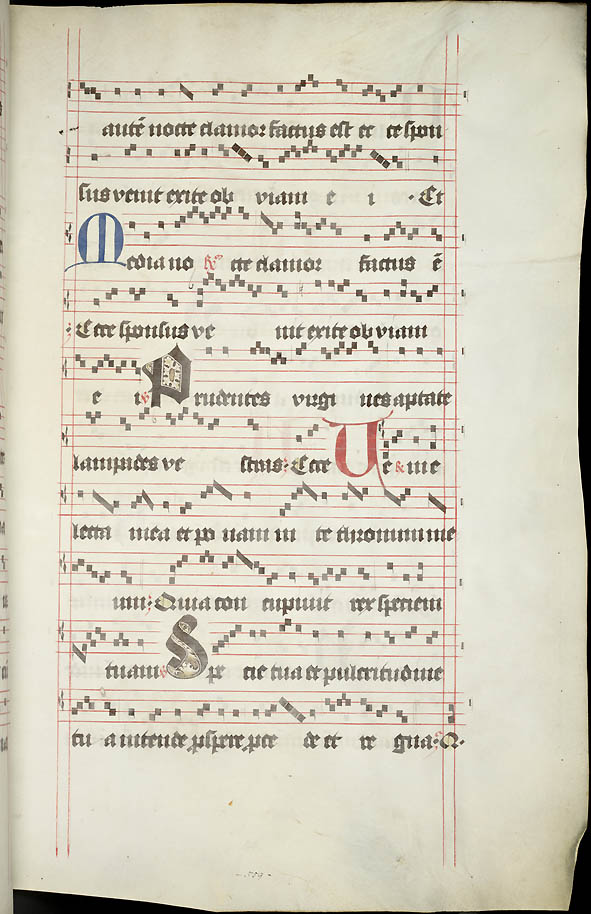 autē nocte clamor factus est ec ce spon
sus venit exite ob viam e i · Et
Media no cte clamor factus ē
Ecce sponsus ve nit exite obviam
e i Prudentes virgi nes aptate
lampades ve stras Ecce Ve ni e
lecta mea et po nam in te thronum me
um Quia con cupivit rex speciem
tuam Spe cie tua et pulcritudine
tu a intende ꝓspere ꝓce de et re gna